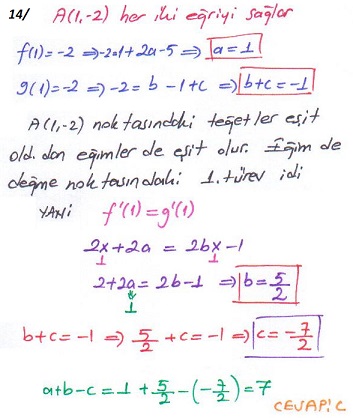 14/ A(1,-2) her iki eğriyi sağlar
f(1)=-2 ⇒ -2=1+2a-5 ⇒ a=1
g(1)=-2 ⇒ -2=b-1+c ⇒ b+c=-1
A(1,-2) noktasındaki teğetler eşit
old. dan eğimler de eşit olur. Eğim de
değme noktasındaki 1. türev idi
YANİ f'(1)=g'(1)
2x+2a = 2bx-1
1 1
2+2a = 2b-1 ⇒ b=5/2
1
b+c=-1 ⇒ 5/2+c=-1 ⇒ c=-7/2
a+b-c=1+5/2-(-7/2)=7
CEVAP: C